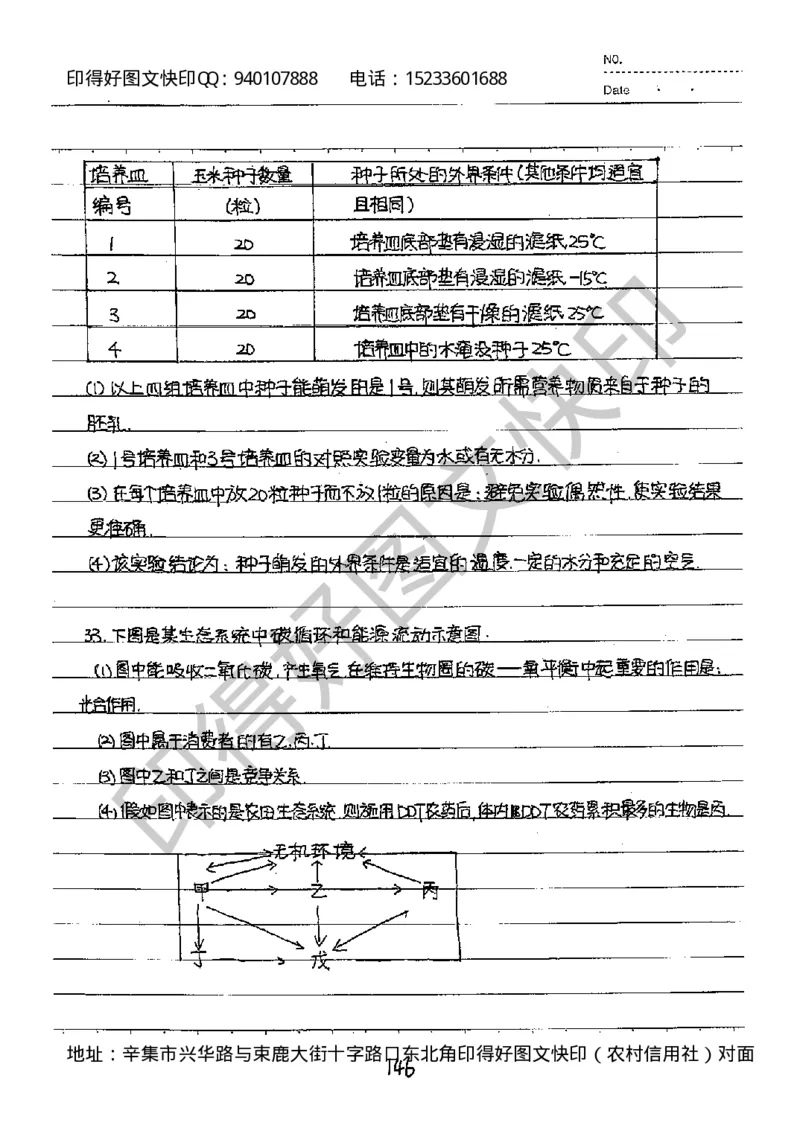 NO.
印得好图文快印QQ：940107888 电话：15233601688
Date
培养皿 玉米种子数量 种子所处的外界条件(其他条件均适宜
编号 (粒) 且相同)
1 20 培养皿底部垫有浸湿的滤纸,25℃
2 20 培养皿底部垫有浸湿的滤纸 -15℃
3 20 培养皿底部垫有干燥的滤纸 25℃
4 20 培养皿中的水淹没种子25℃
(1)以上四组培养皿中种子能萌发的是1号,则其萌发所需营养物质来自于种子的
胚乳.
(2)1号培养皿和3号培养皿的对照实验变量为水或有无水分.
(3)在每个培养皿中放20粒种子而不放1粒的原因是:避免实验偶然性,使实验结果
更准确.
(4)该实验结论为:种子萌发的外界条件是适宜的温度.一定的水分和充足的空气.
33.下图是某生态系统中碳循环和能源流动示意图.
(1)图中能吸收二氧化碳,产生氧气,在维持生物圈的碳——氧平衡中起重要的作用是:
光合作用.
(2)图中属于消费者的有乙.丙.丁
(3)图中乙和丁之间是竞争关系.
(4)假如图中表示的是农田生态系统,则施用DDT农药后,体内DDT农药累积最多的生物是丙.
无机环境
甲 乙 丙
丁 戊
印得好图文快印
地址：辛集市兴华路与束鹿大街十字路口东北角印得好图文快印（农村信用社）对面
146